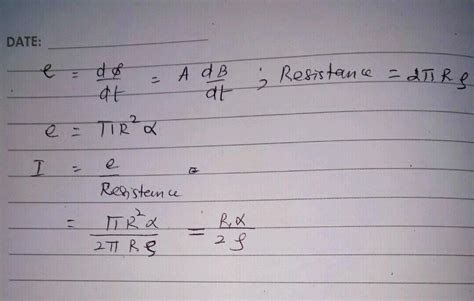 DATE:
e = dϕ/dt = A dB/dt ; Resistance = 2πRρ
e = πR²α
I = e/Resistance =
= πR²α/2πRρ = R.α/2ρ